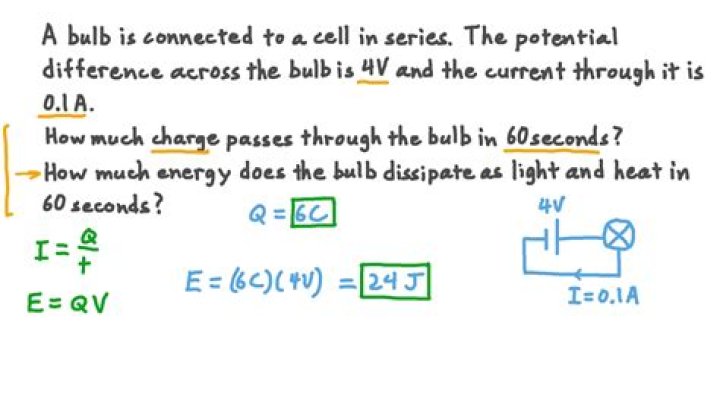 A bulb is connected to a cell in series. The potential
difference across the bulb is 4V and the current through it is
0.1A.
How much charge passes through the bulb in 60 seconds?
→How much energy does the bulb dissipate as light and heat in
60 seconds?
Q = 6C
4V
I = Q/t
E = (6C)(4V) = 24 J
I=0.1A
E = QV